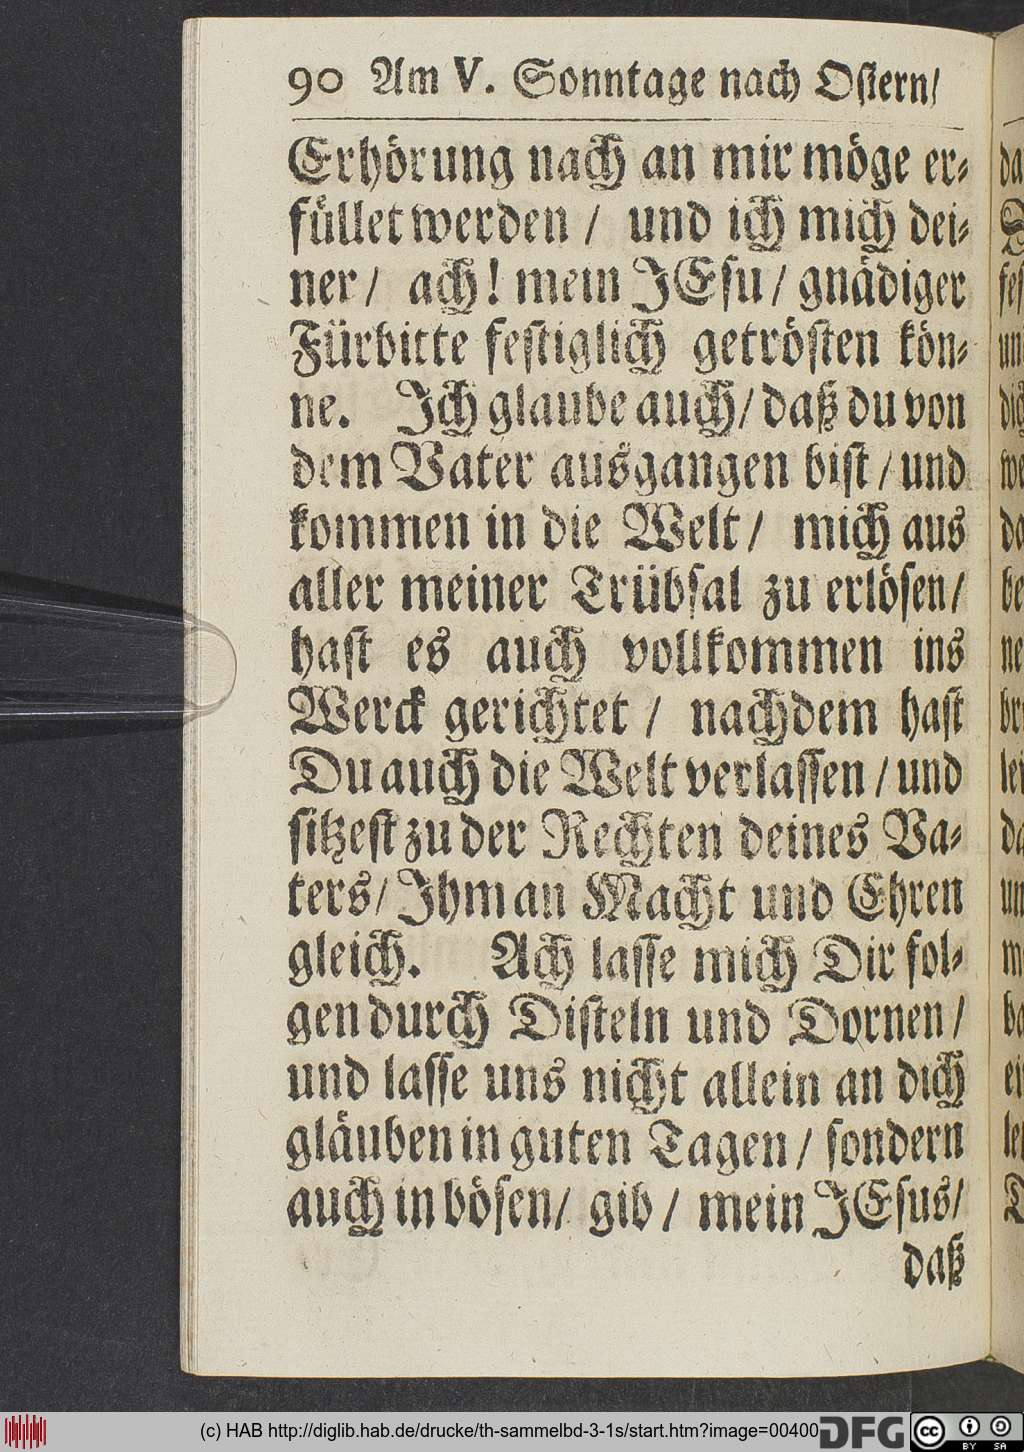 90 Am V. Sonntage nach Oſtern/
Erhörung nach an mir möge er⸗
füllet werden / und ich mich dei⸗
ner / ach! mein JEſu / gnädiger
Fürbitte feſtiglich getröſten kön⸗
ne. Ich glaube auch / daß du von
dem Vater ausgangen biſt / und
kommen in die Welt / mich aus
aller meiner Trübſal zu erlöſen /
haſt es auch vollkommen ins
Werck gerichtet / nachdem haſt
Du auch die Welt verlaſſen / und
ſitzeſt zu der Rechten deines Va⸗
ters / Ihm an Macht und Ehren
gleich. Ach laſſe mich Dir fol⸗
gen durch Diſteln und Dornen /
und laſſe uns nicht allein an dich
gläuben in guten Tagen / ſondern
auch in böſen / gib / mein JEſus /
daß
(c) HAB http://diglib.hab.de/drucke/th-sammelbd-3-1s/start.htm?image=00400
DFG
cc
BY SA